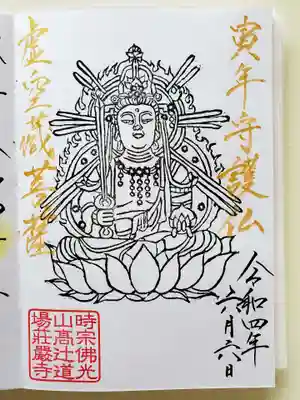 寅年守護仏
令和四年
六月六日
虚空蔵菩薩
時宗佛光
山高辻道
場荘嚴寺